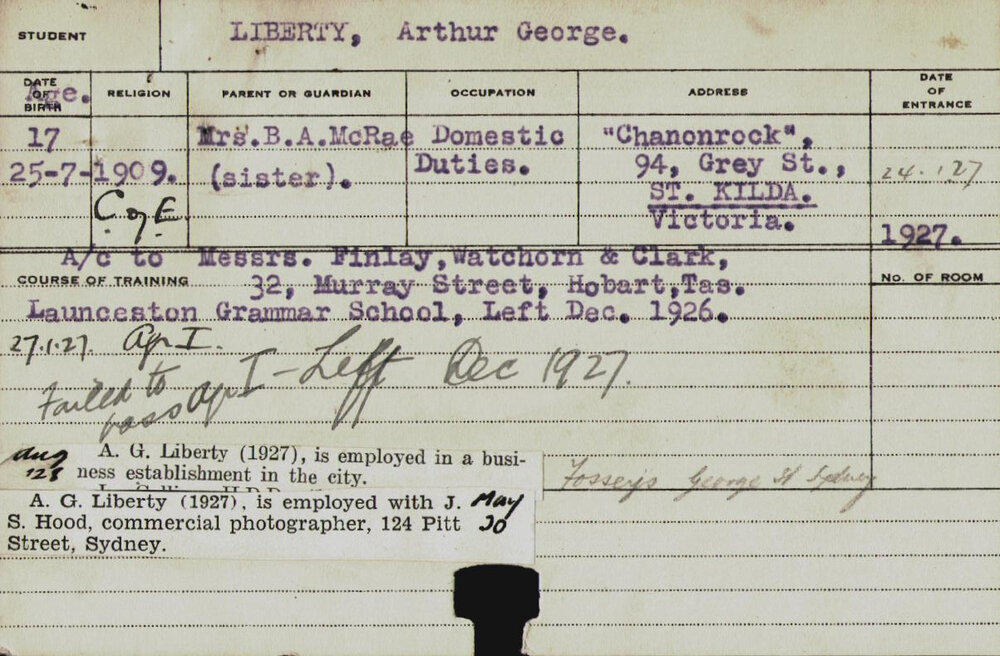 STUDENT
LIBERTY, Arthur George.
DATE OF BIRTH
Age.
RELIGION
PARENT OR GUARDIAN
OCCUPATION
ADDRESS
DATE OF ENTRANCE
17
Mrs.B.A.McRae
Domestic
"Chanonrock",
25-7-1909.
(sister).
Duties.
94, Grey St.,
24.1.27
C of E
ST. KILDA.
Victoria.
1927.
A/c to Messrs. Finlay,Watchorn & Clark,
COURSE OF TRAINING
32, Murray Street, Hobart,Tas.
No. OF ROOM
Launceston Grammar School, Left Dec. 1926.
27.1.27. Agr I.
Failed to pass Agr I - Left Dec 1927.
Aug '28
A. G. Liberty (1927), is employed in a busi-
ness establishment in the city.
Fossey's George St Sydney
A. G. Liberty (1927), is employed with J.
S. Hood, commercial photographer, 124 Pitt
Street, Sydney.
May 30